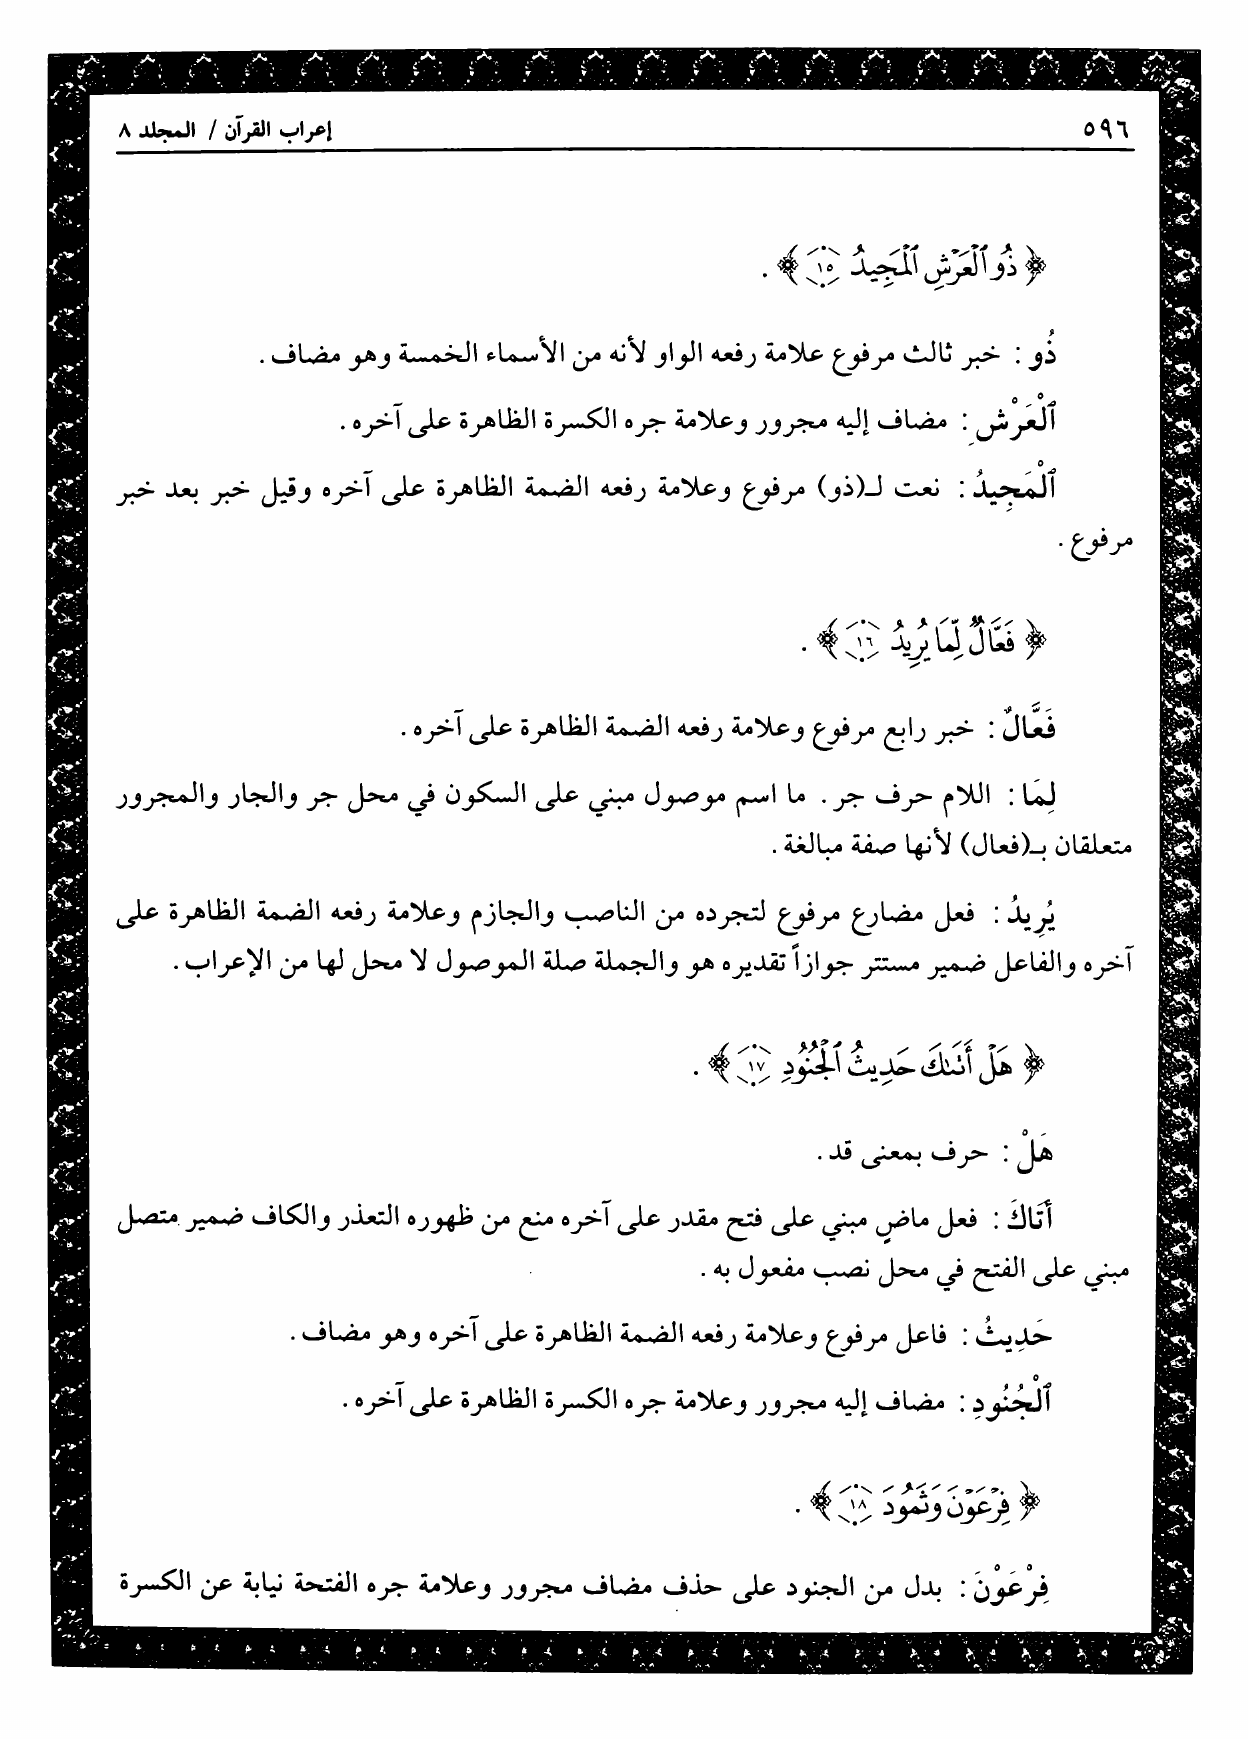 ٥٩٦
إعراب القرآن / المجلد ٨
﴿ ذُو ٱلْعَرْشِ ٱلْمَجِيدُ ١٥ ﴾ .
ذُو : خبر ثالث مرفوع علامة رفعه الواو لأنه من الأسماء الخمسة وهو مضاف .
ٱلْعَرْشِ : مضاف إليه مجرور وعلامة جره الكسرة الظاهرة على آخره .
ٱلْمَجِيدُ : نعت لـ(ذو) مرفوع وعلامة رفعه الضمة الظاهرة على آخره وقيل خبر بعد خبر
مرفوع .
﴿ فَعَّالٌ لِّمَا يُرِيدُ ١٦ ﴾ .
فَعَّالٌ : خبر رابع مرفوع وعلامة رفعه الضمة الظاهرة على آخره .
لِمَا : اللام حرف جر . ما اسم موصول مبني على السكون في محل جر والجار والمجرور
متعلقان بـ(فعال) لأنها صفة مبالغة .
يُرِيدُ : فعل مضارع مرفوع لتجرده من الناصب والجازم وعلامة رفعه الضمة الظاهرة على
آخره والفاعل ضمير مستتر جوازاً تقديره هو والجملة صلة الموصول لا محل لها من الإعراب .
﴿ هَلْ أَتَىٰكَ حَدِيثُ ٱلْجُنُودِ ١٧ ﴾ .
هَلْ : حرف بمعنى قد .
أَتَاكَ : فعل ماضٍ مبني على فتح مقدر على آخره منع من ظهوره التعذر والكاف ضمير متصل
مبني على الفتح في محل نصب مفعول به .
حَدِيثُ : فاعل مرفوع وعلامة رفعه الضمة الظاهرة على آخره وهو مضاف .
ٱلْجُنُودِ : مضاف إليه مجرور وعلامة جره الكسرة الظاهرة على آخره .
﴿ فِرْعَوْنَ وَثَمُودَ ١٨ ﴾ .
فِرْعَوْنَ : بدل من الجنود على حذف مضاف مجرور وعلامة جره الفتحة نيابة عن الكسرة